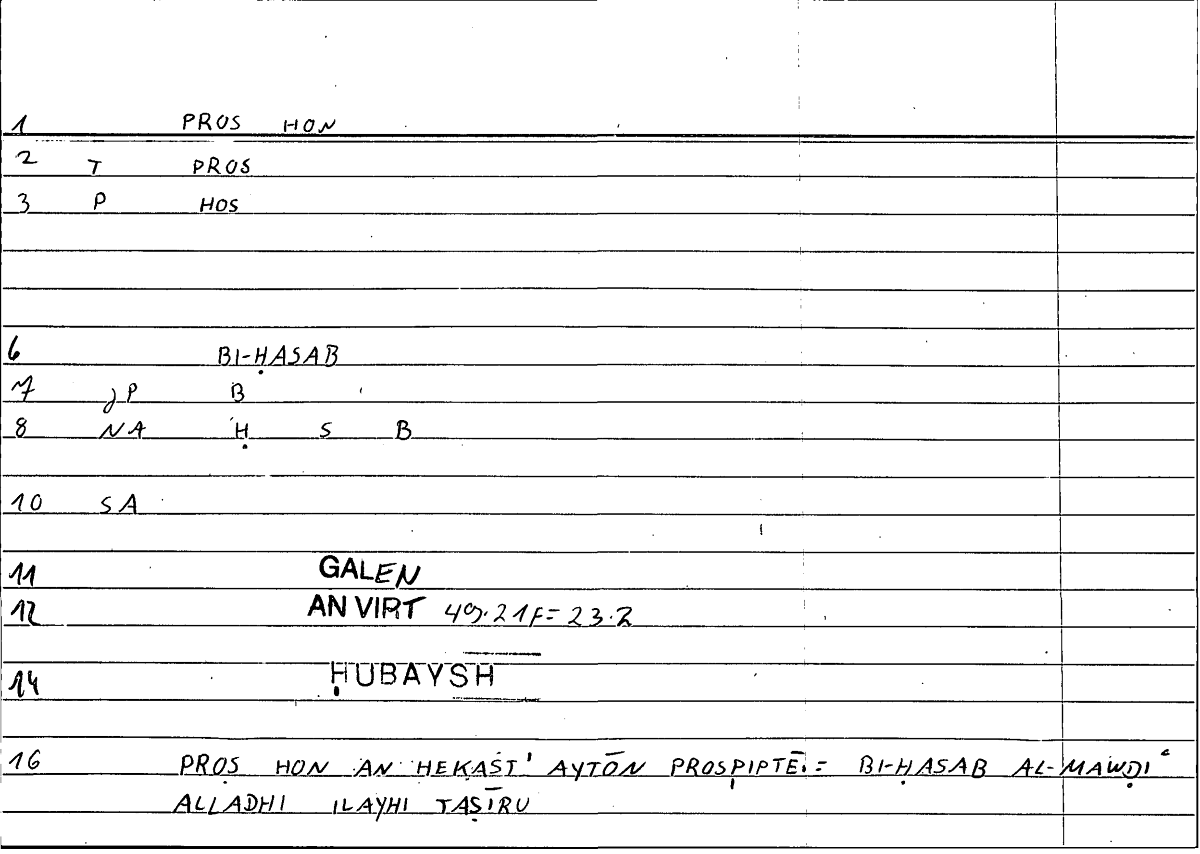 1 PROS HON
2 T PROS
3 P HOS
6 BI-ḤASAB
7 JP B
8 NA Ḥ S B
10 SA
11 GALEN
12 AN VIRT 49.21F=23.2
14 ḤUBAYSH
16 PROS HON AN HEKAST' AYTŌN PROSPIPTĒI = BI-ḤASAB AL-MAWḌIʿ
ALLADHI ILAYHI TAṢĪRU